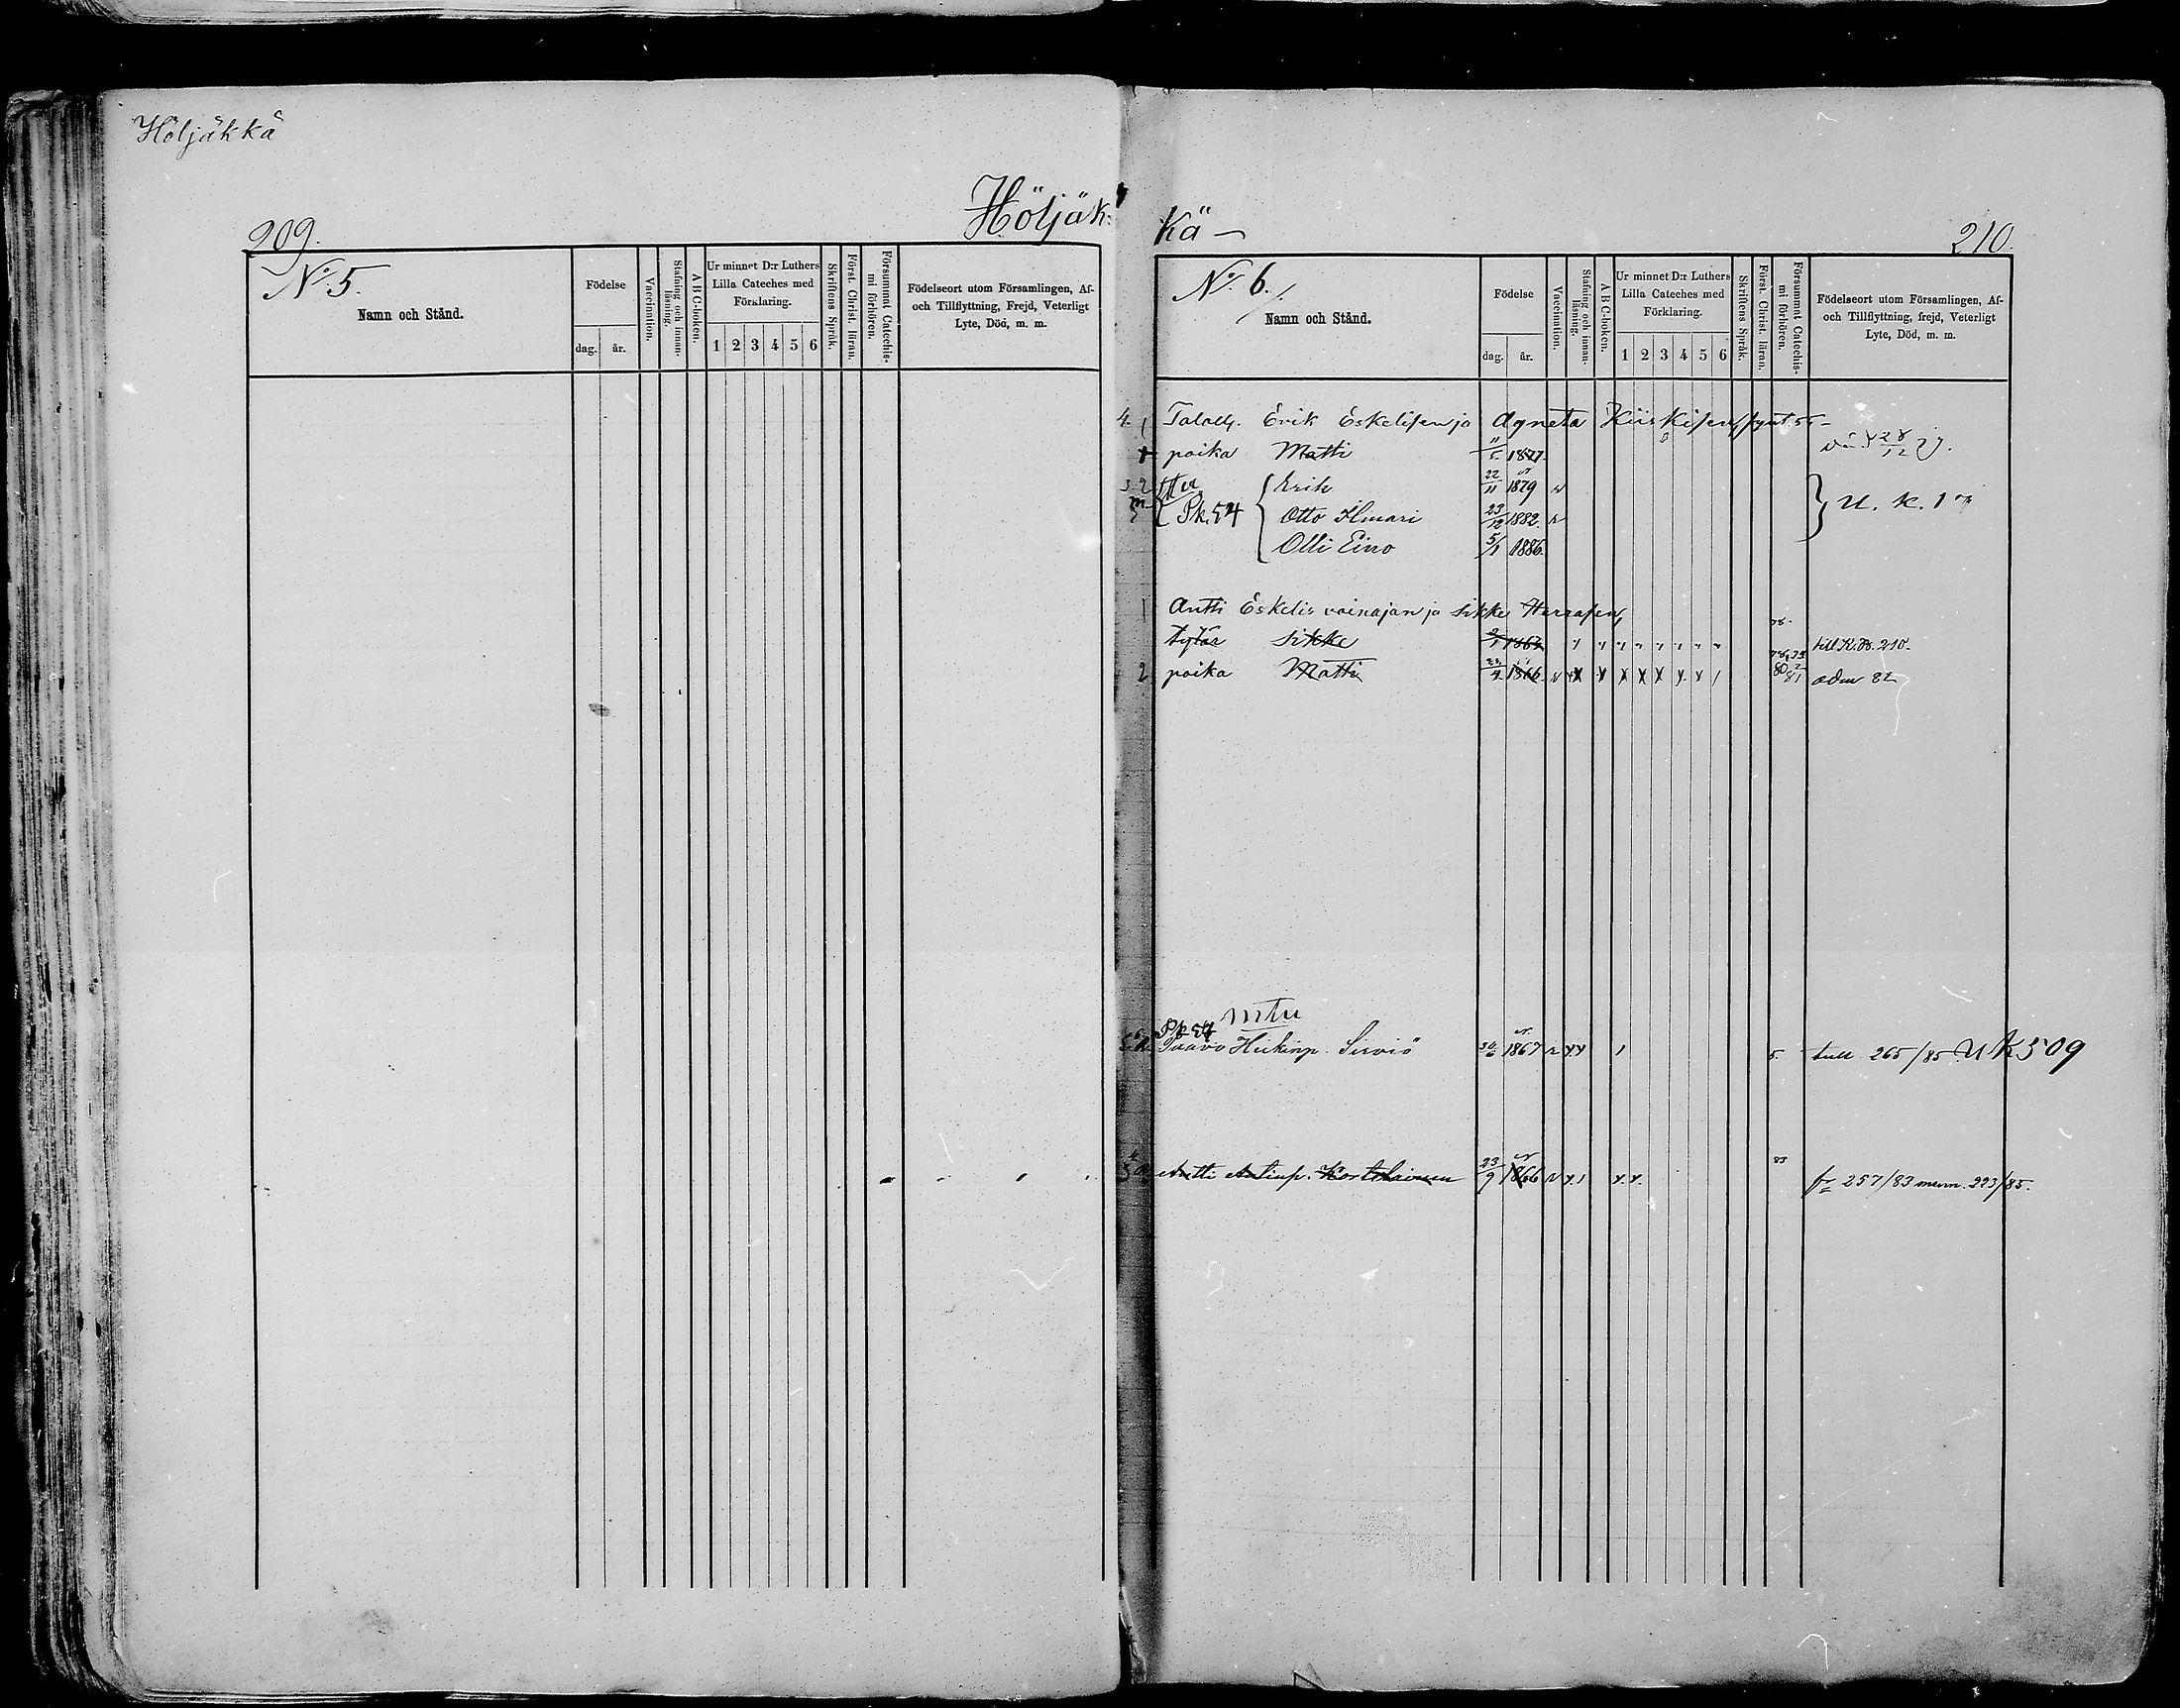 Höljäkkä
Höljäk-
209.
No 5.
Namn och Stånd.
Födelse
dag. år.
Vaccination.
Stafning och innan-läsning.
A B C-boken.
Ur minnet D:r Luthers
Lilla Cateches med
Förklaring.
1 2 3 4 5 6
Skriftens Språk.
Först. Christ. läran.
Försummat Catechis-
mi förhören.
Födelseort utom Församlingen, Af-
och Tillflyttning, Frejd, Veterligt
Lyte, Död, m. m.
kä -
210.
No 6.
Namn och Stånd.
Födelse
dag. år.
Vaccination.
Stafning och innan-läsning.
A B C-boken.
Ur minnet D:r Luthers
Lilla Cateches med
Förklaring.
1 2 3 4 5 6
Skriftens Språk.
Först. Christ. läran.
Försummat Catechis-
mi förhören.
Födelseort utom Församlingen, Af-
och Tillflyttning, frejd, Veterligt
Lyte, Död, m. m.
4. Erik Eskelisen ja Agneta Kiiskisen
poika Matti 11/5 1877.
Erik 22/11 1879 v
Pk. 54 Otto Ilmari 23/12 1882. v U. k. 1
Olli Eino 5/1 1886.
1 Antti Eskelis vainajan ja Sikke
tytär Sikke 1863 till K.B. 210.
2 poika Matti 1866. v x x x x x x x / 80 81 82
Pk 54 mtu
Paavo Heikinp. Sirviö 1867 v x x 1 5. tull 265/85. U K 509
Antti Antinp. Kortelainen 23/9 1866 v x 1 x x 83 fr 257/83 223/85.